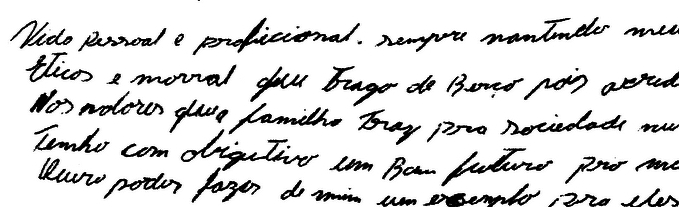 Vida pessoal e proficional. sempre mantendo meu
Eticos e morral que trago de Berço pois acred
Nos valores que a familha traz pra sociedade
Tenho com obigetivo um Bom futuro pro
Quero poder fazer de mim um exemplo pra eles